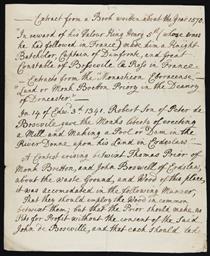 Extract from a Book written about the Year 1570.
In reward of his Valour King Henry 5th (whose wars
he has followed in France) made him a Knight
Batchelor, Captain of Dunfront, and
Constable of Bosseville La Rose in France.
Extracts from the Monasticon Eboracense.
Land of Monk Bretton Priory in the Deanery
of Doncaster.
In 14 of Edwd 3d 1341. Robert Son of Peter de
Bosevile gave the Monks liberty of erecting
a Mill, and making a Port or Dam in the
River Donne upon his Land in Erdeslaw.
A Contest arising betwixt Thomas Prior of
Monk Bretton, and John Boswell of
about the Waste Ground, and Wood of this place,
it was accomodated in the following Manner,
That they should employ the Wood in common
betwixt them, but that the Prior should make no
Pits for Profit without the consent of the said
John de Bosseville, and that each should take